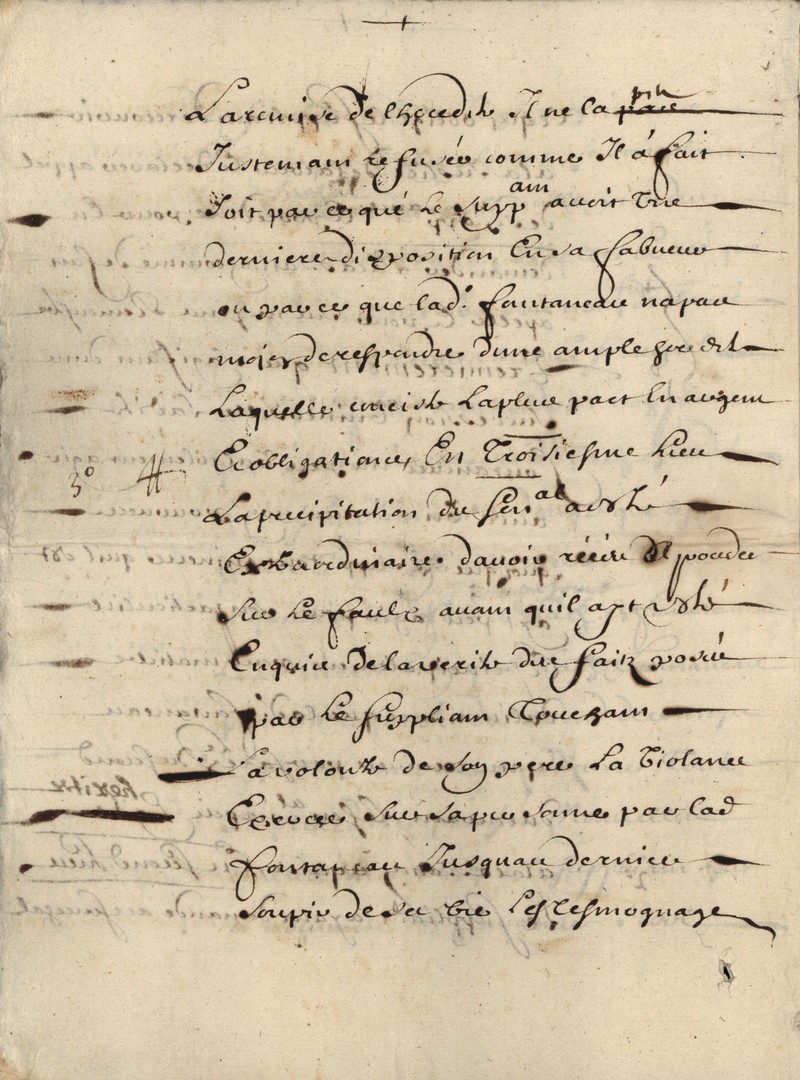 La remise de lheredité Il ne la peu
Justemant refusée comme Il á fait
Soit par ce qué Le supp^am avoit Une
derniere disposition En sa faveur
ou par ce que lad. fontaneau na pau
moien de respondre dune ample heredité
Laquelle conciste La plus part En argent
Et obligations En Troisiesme Lieu
3° La precipitation du sen^al a esté
Extraordinaire davoir
Sur Le faulx avant quil ayt esté
Enquis de la verité des faitz posés
par Le suppliant Touchant
La volonté de son pere La Violance
Exercée Sur sa personne par lad
fontaneau Jusquau dernier
Soupir de sa vie Les Tesmognage